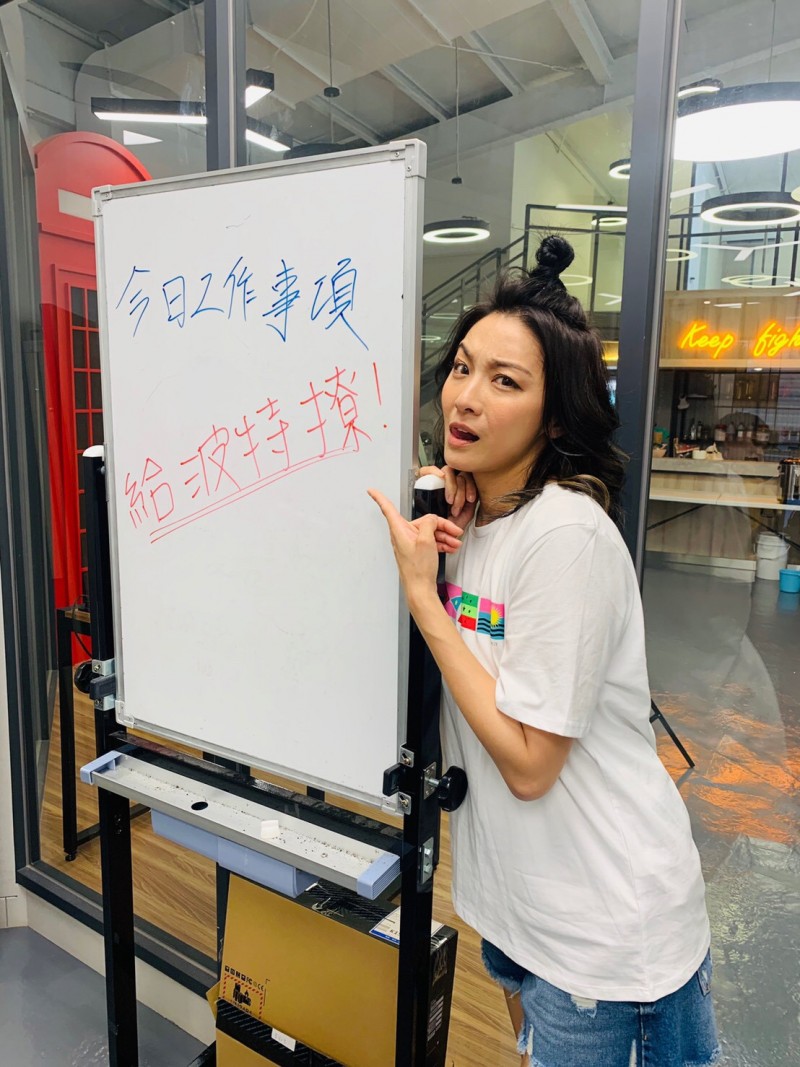 今日工作事項
給波特撩!
Keep figh